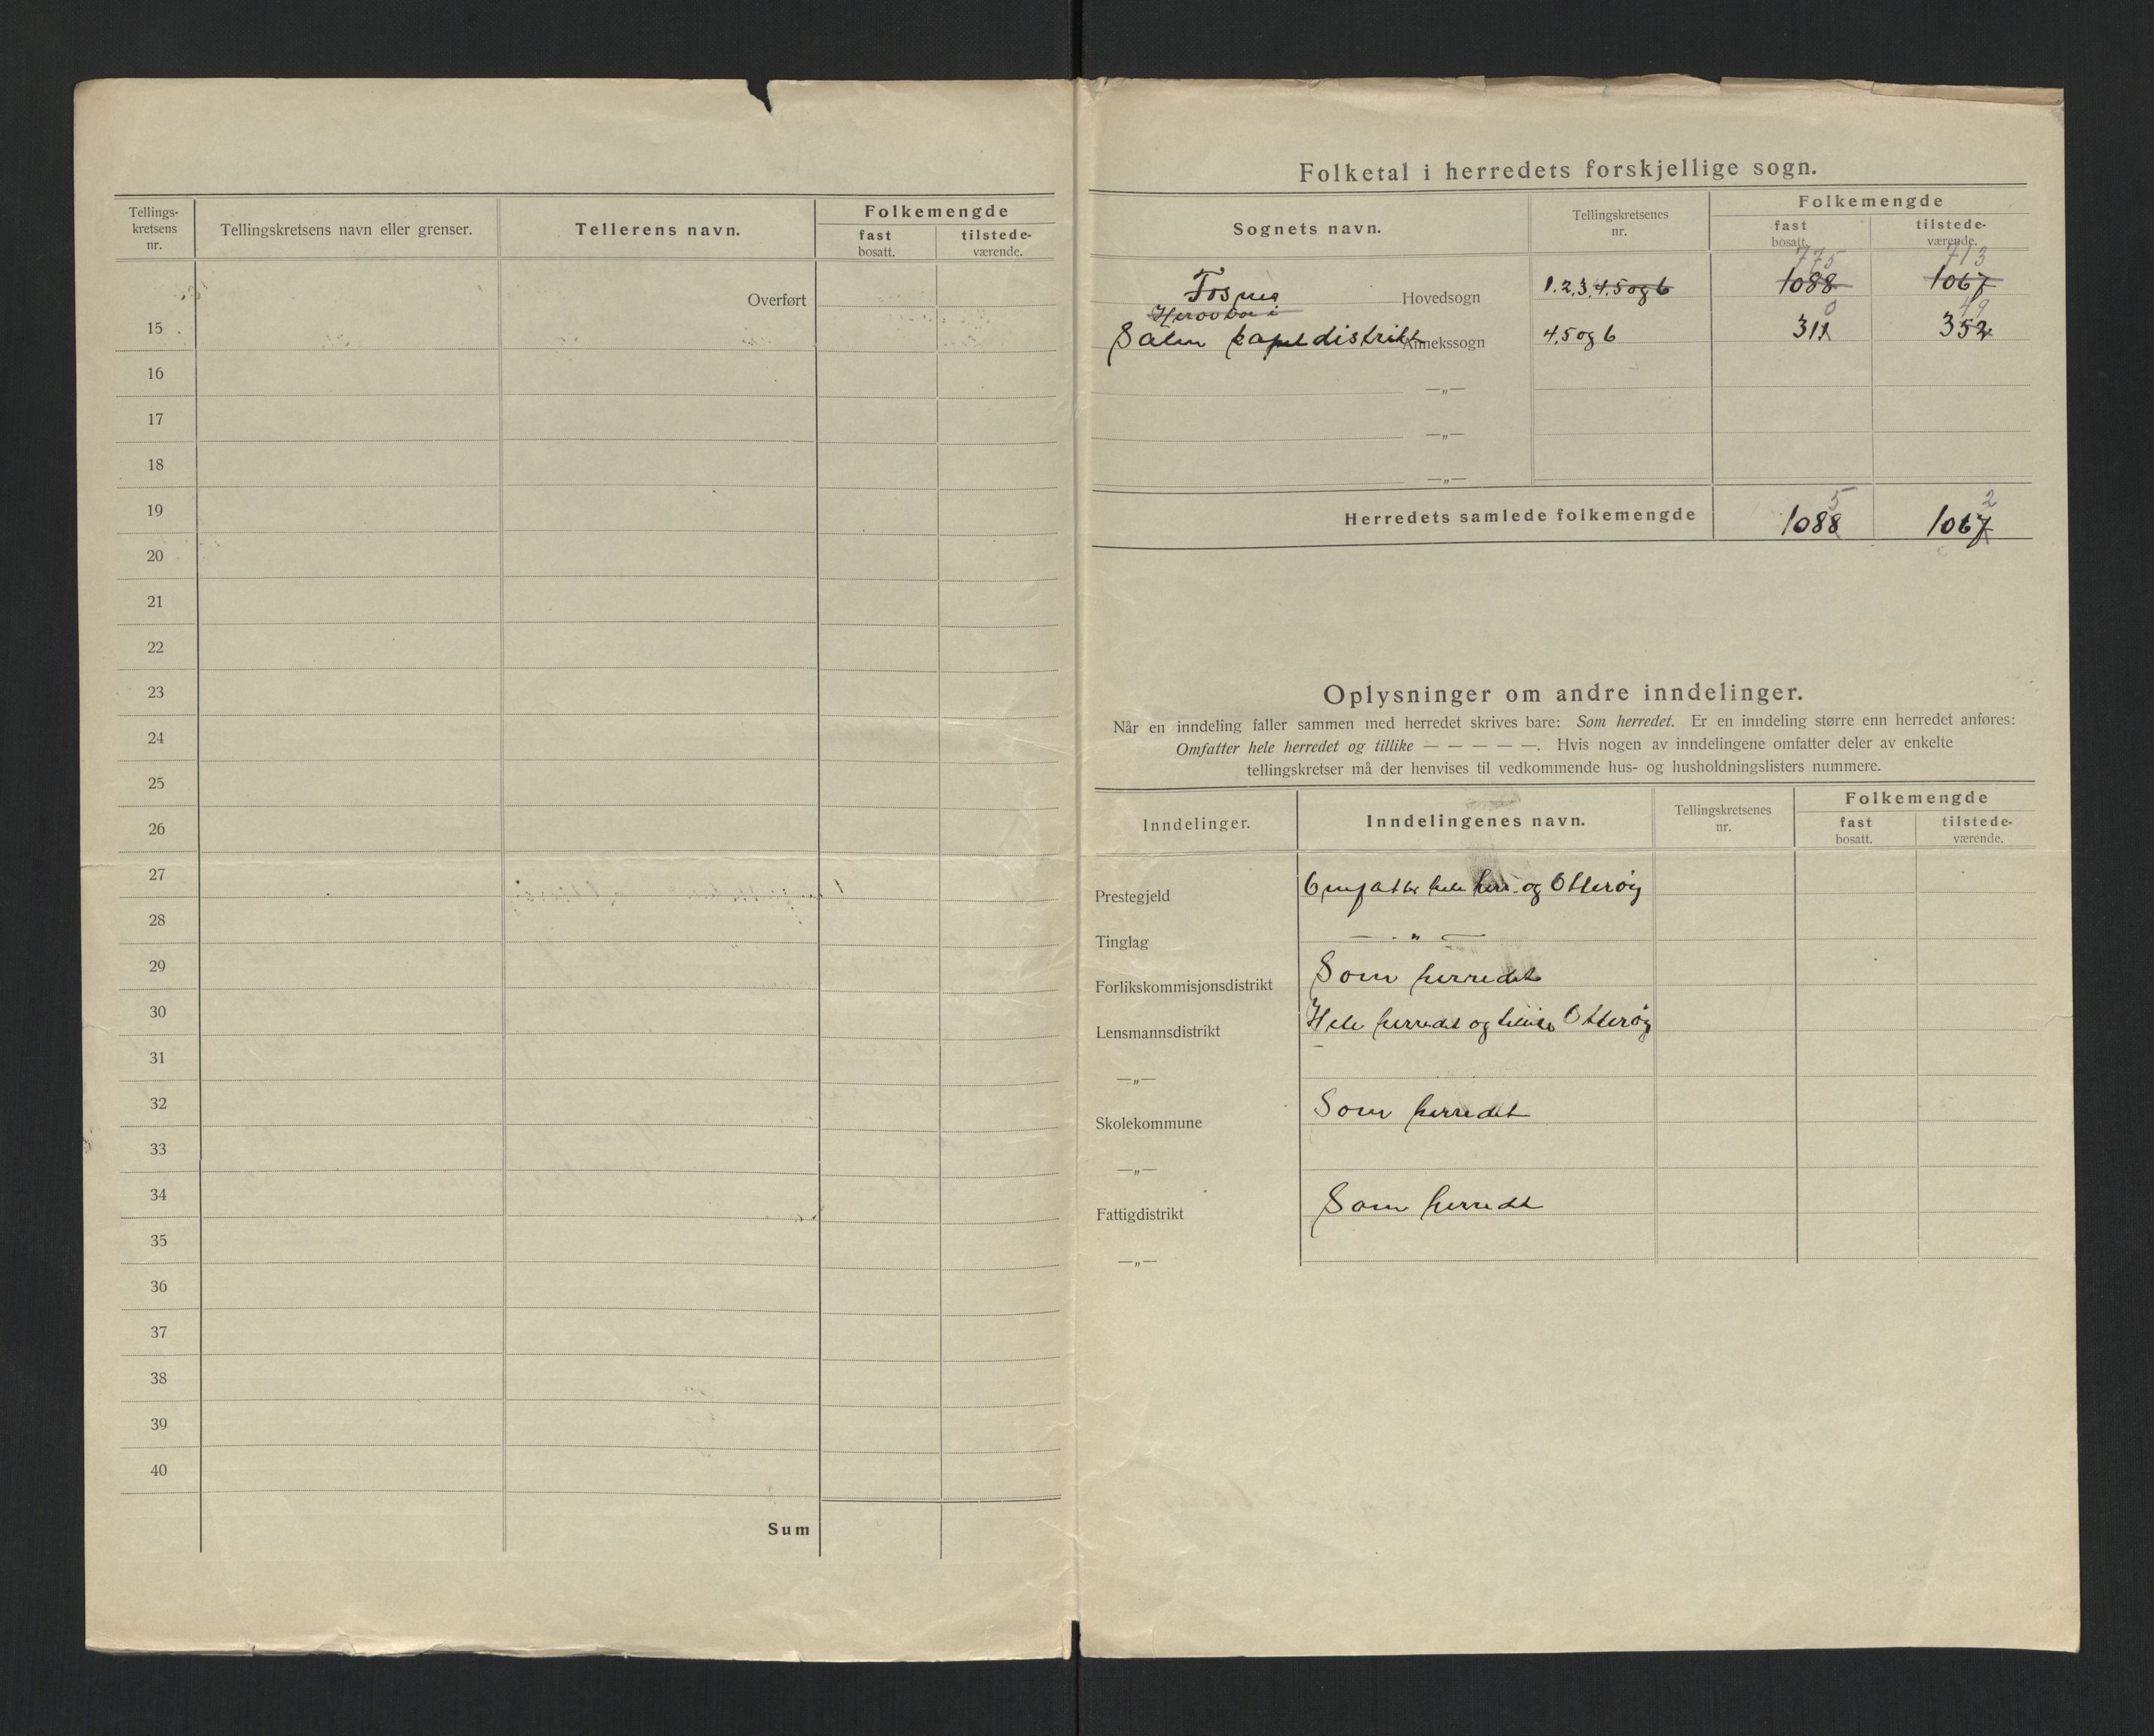 Tellings-
kretsens
nr.
Tellingskretsens navn eller grenser.
Tellerens navn.
Folkemengde
fast
bosatt.
tilstede-
værende.
Overført
15
16
17
18
19
20
21
22
23
24
25
26
27
28
29
30
31
32
33
34
35
36
37
38
39
40
Sum
Folketal i herredets forskjellige sogn.
Sognets navn.
Tellingskretsenes
nr.
Folkemengde
fast
bosatt.
tilstede-
værende.
775 713
Fosnes Hovedsogn 1.2.3.4.5 og 6 1088 1067
0 49
Salen kapeldistrikt Annekssogn 4.5 og 6 311 352
—„—
—„—
—„—
5 2
Herredets samlede folkemengde 1088 1067
Oplysninger om andre inndelinger.
Når en inndeling faller sammen med herredet skrives bare: Som herredet. Er en inndeling større enn herredet anføres:
Omfatter hele herredet og tillike — — — — —. Hvis nogen av inndelingene omfatter deler av enkelte
tellingskretser må der henvises til vedkommende hus- og husholdningslisters nummere.
Inndelinger.
Inndelingenes navn.
Tellingskretsenes
nr.
Folkemengde
fast
bosatt.
tilstede-
værende.
Prestegjeld Omfatter hele herr. og Otterøy
Tinglag — „ —
Forlikskommisjonsdistrikt Som herredet
Lensmannsdistrikt Hele herredet og tillike Otterøy
—„—
Skolekommune Som herredet
—„—
Fattigdistrikt Som herredet
—„—